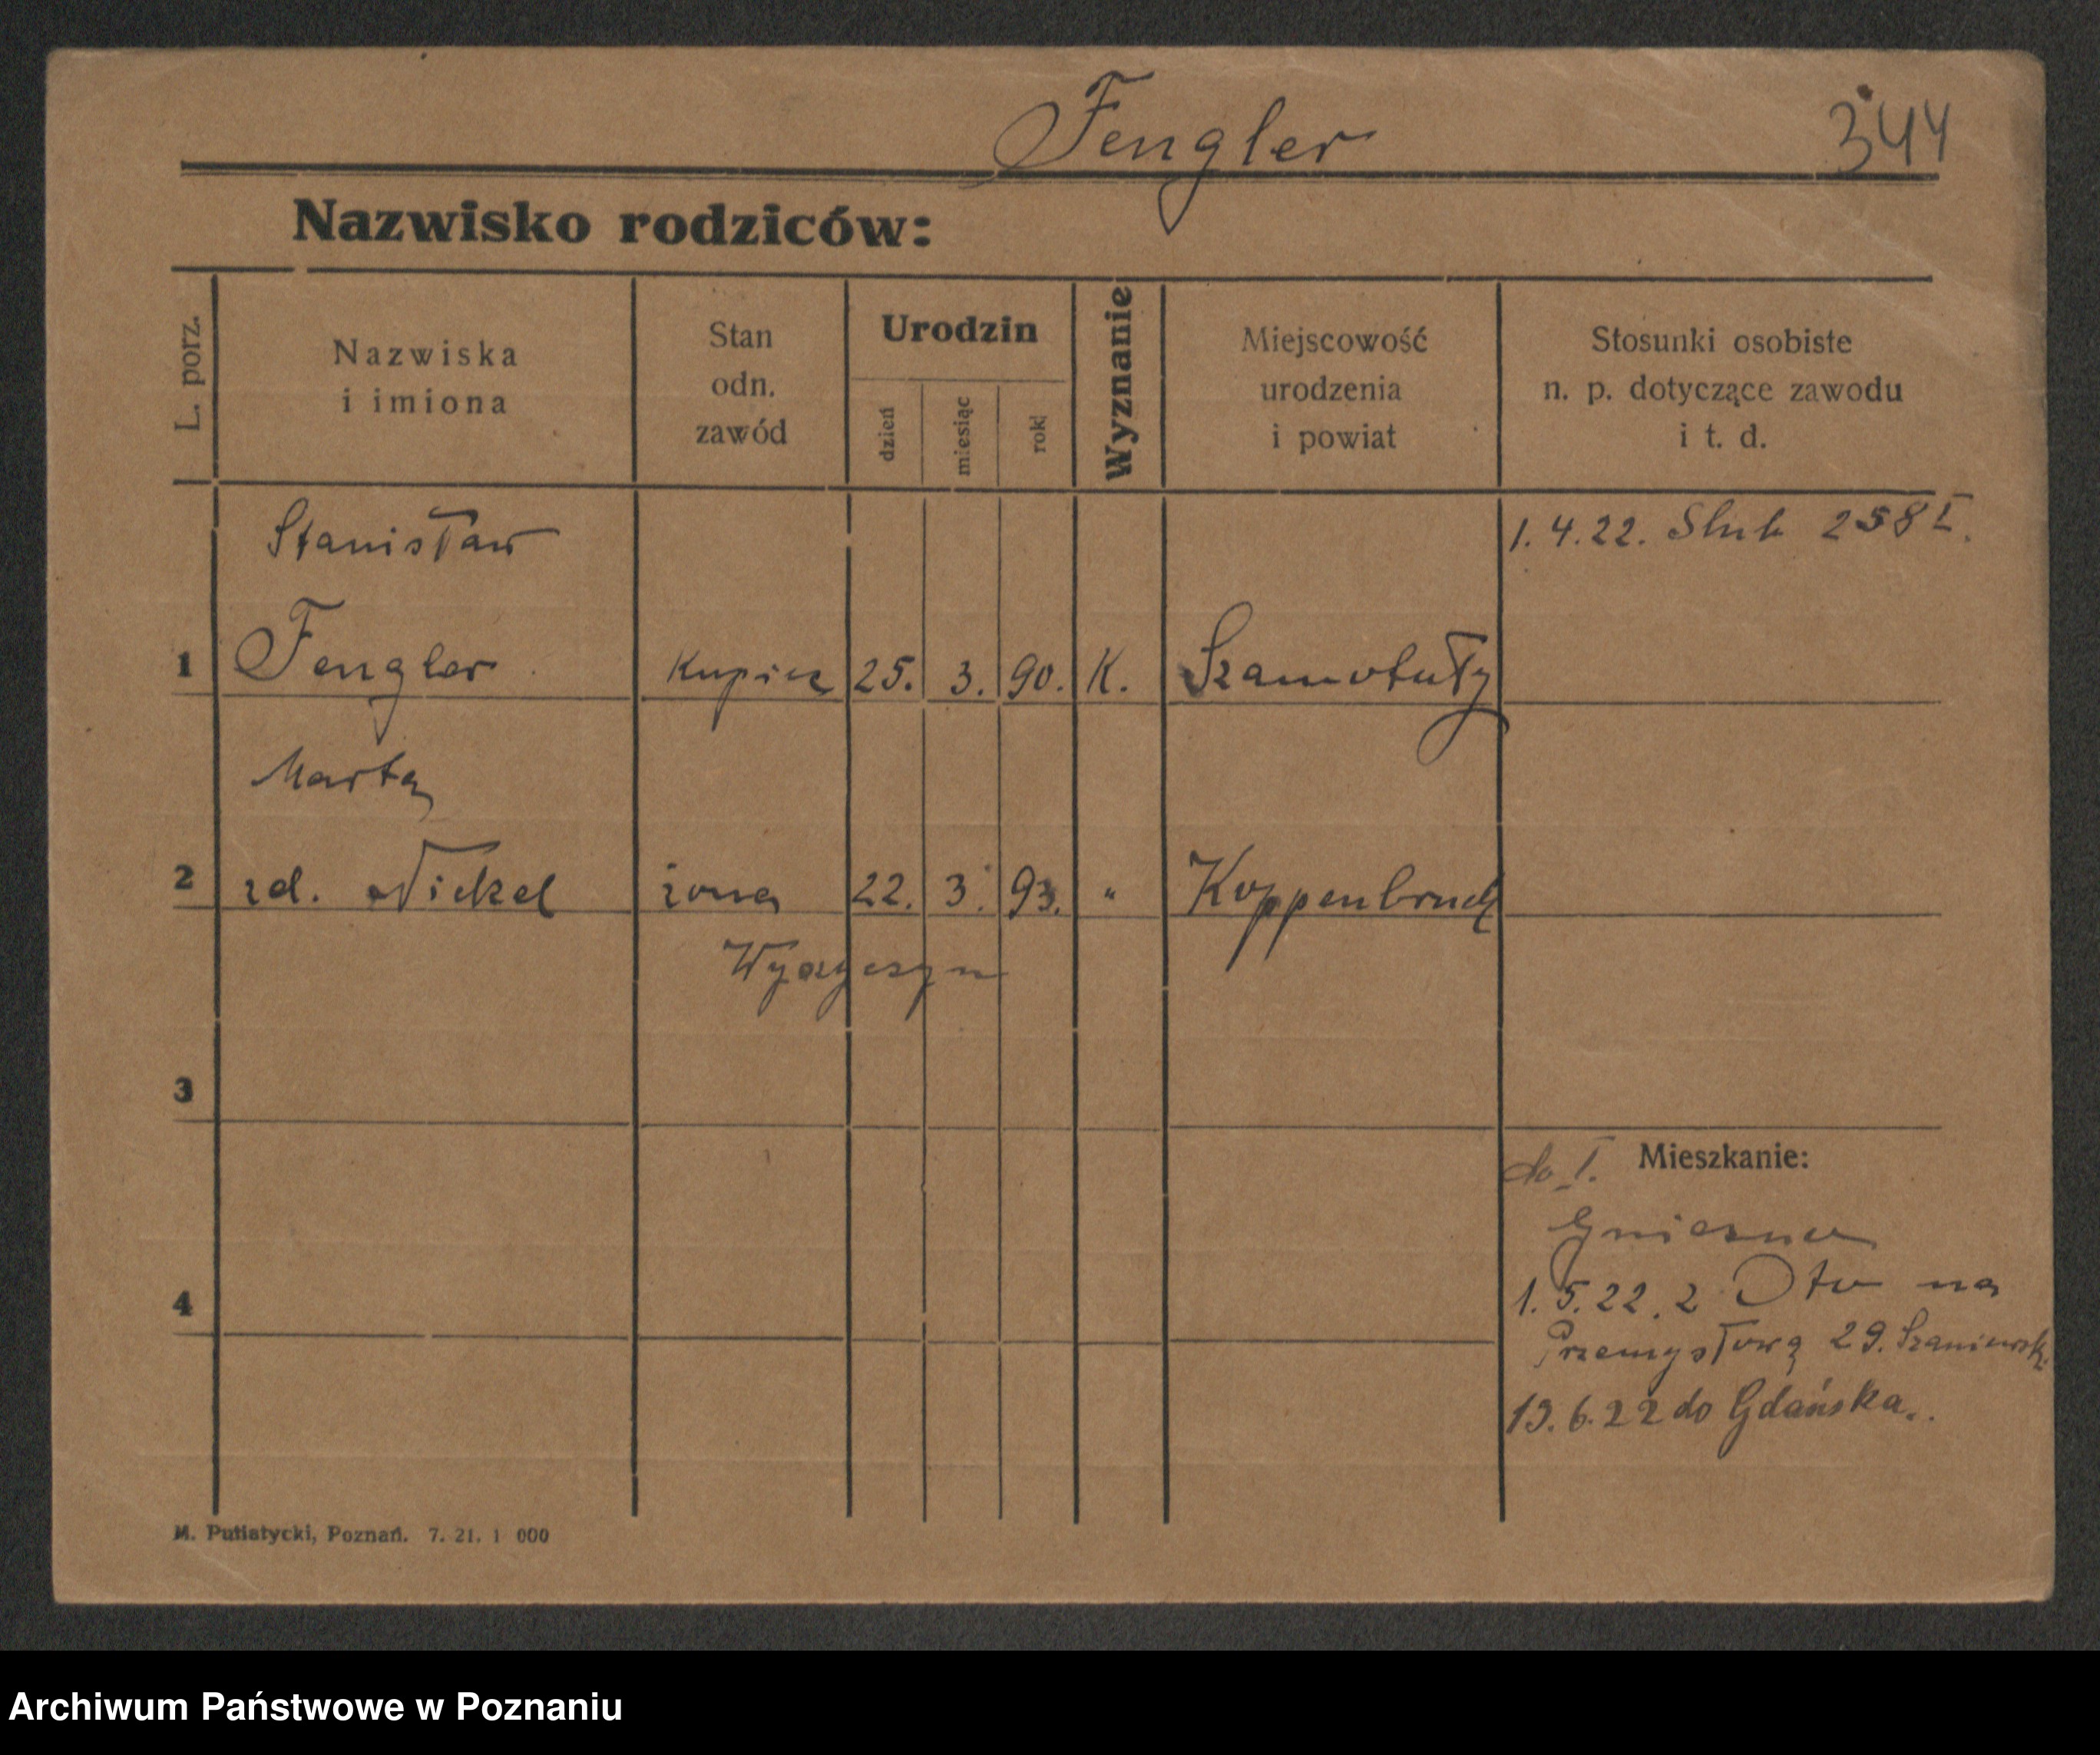 Fengler
344
Nazwisko rodziców:
L. porz.
Nazwiska
i imiona
Stan
odn.
zawód
Urodzin
dzień
miesiąc
rok
Wyznanie
Miejscowość
urodzenia
i powiat
Stosunki osobiste
n. p. dotyczące zawodu
i t. d.
Stanisław
1.4.22. Slub 258 I.
1 Fengler Kupiec 25. 3. 90. K. Szamotuły
Marta
2 zd. Nickel żona 22. 3. 93. " Koppenbruch
3
do I. Mieszkanie:
Gniezno
1.5.22. z Otw na
4
Przemysłową 29. Szaniewsk.
13.6.22 do Gdańska.
M. Putiatycki, Poznań. 7. 21. 1 000
Archiwum Państwowe w Poznaniu